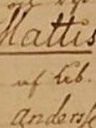 Mattis
af Eb.
Anderss